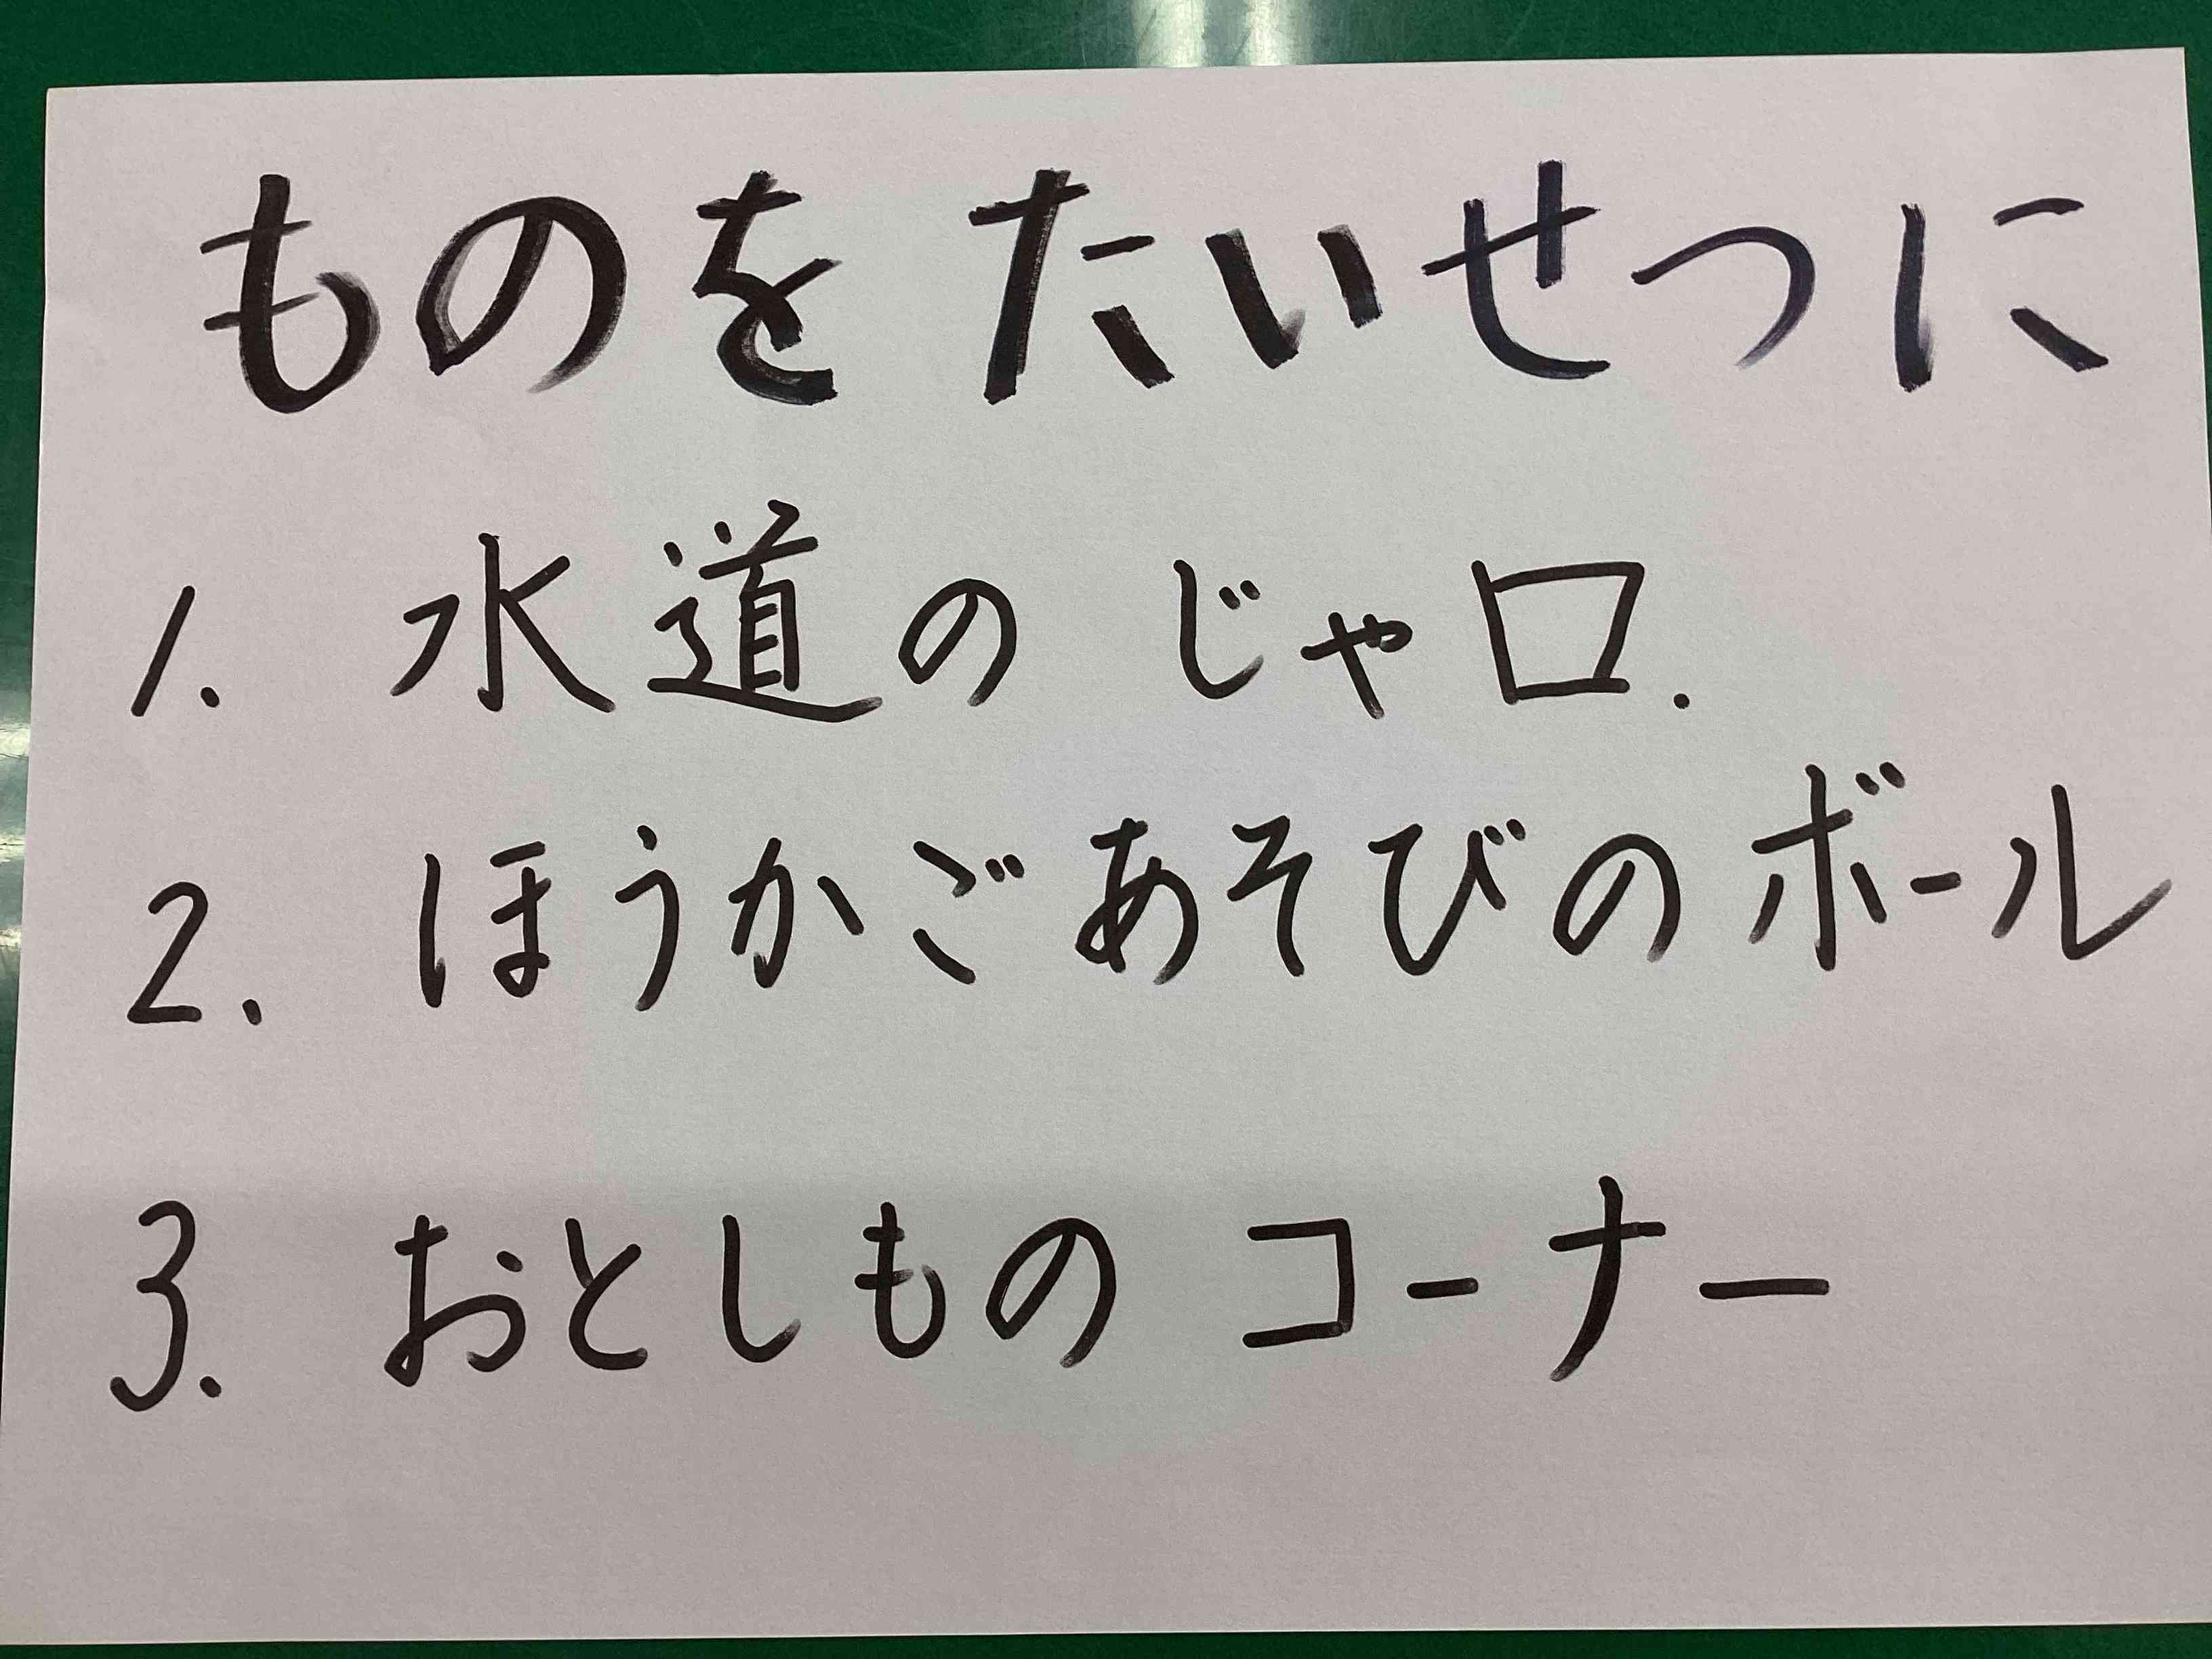 ものを たいせつに
1. 水道の じゃ口.
2. ほうかごあそびのボール
3. おとしもの コーナー